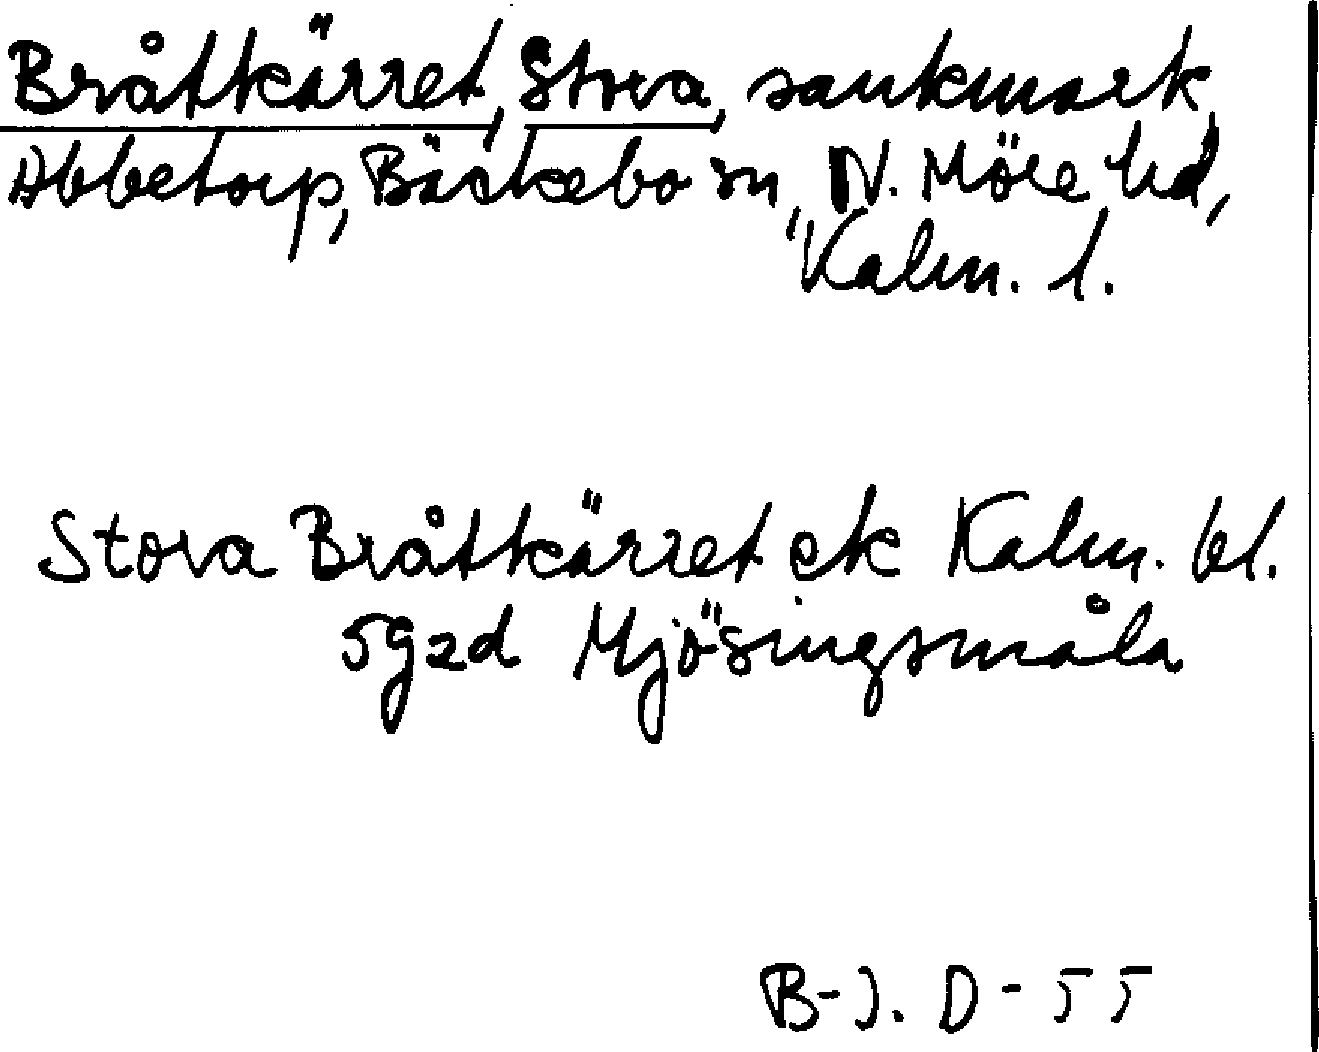 Bråtkärret, Stora, sankmark,
Abbetorp, Bäckebo sn, N. Möre hd,
Kalm. l.
Stora Bråtkärret ek Kalm. bl.
5g2d Mjösingsmåla
B-J. D-55